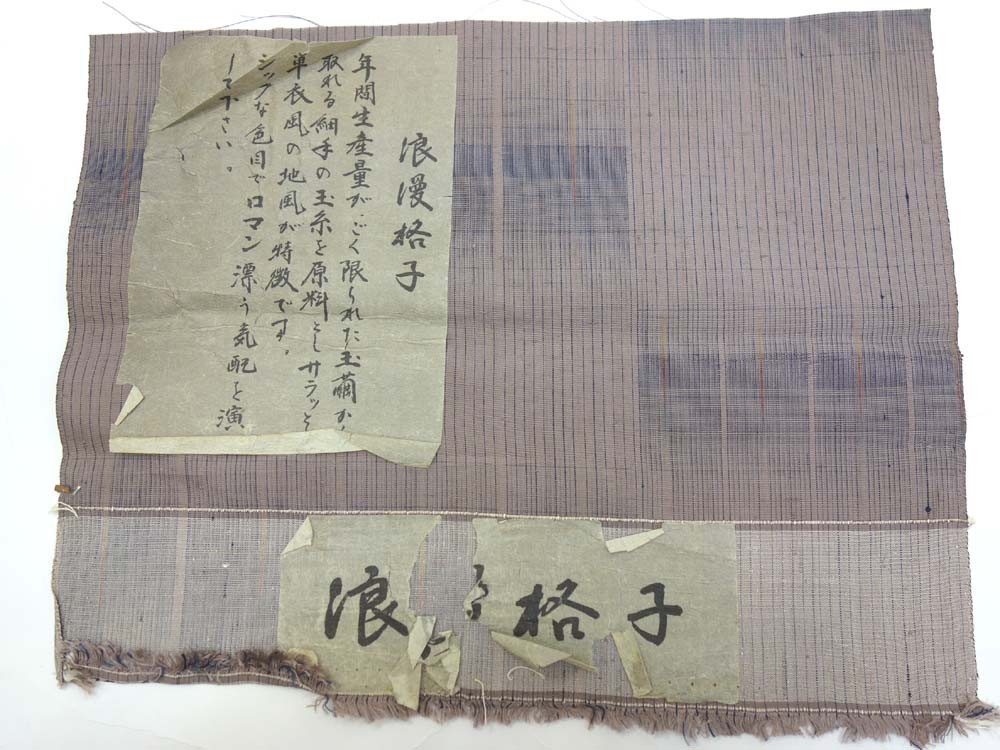 浪漫格子
年間生産量がごく限られた玉繭から
取れる細手の玉糸を原料としサラッとし
単衣風の地風が特徴です。
シックな色目でロマン漂う気配を演
して下さい。
浪 格子